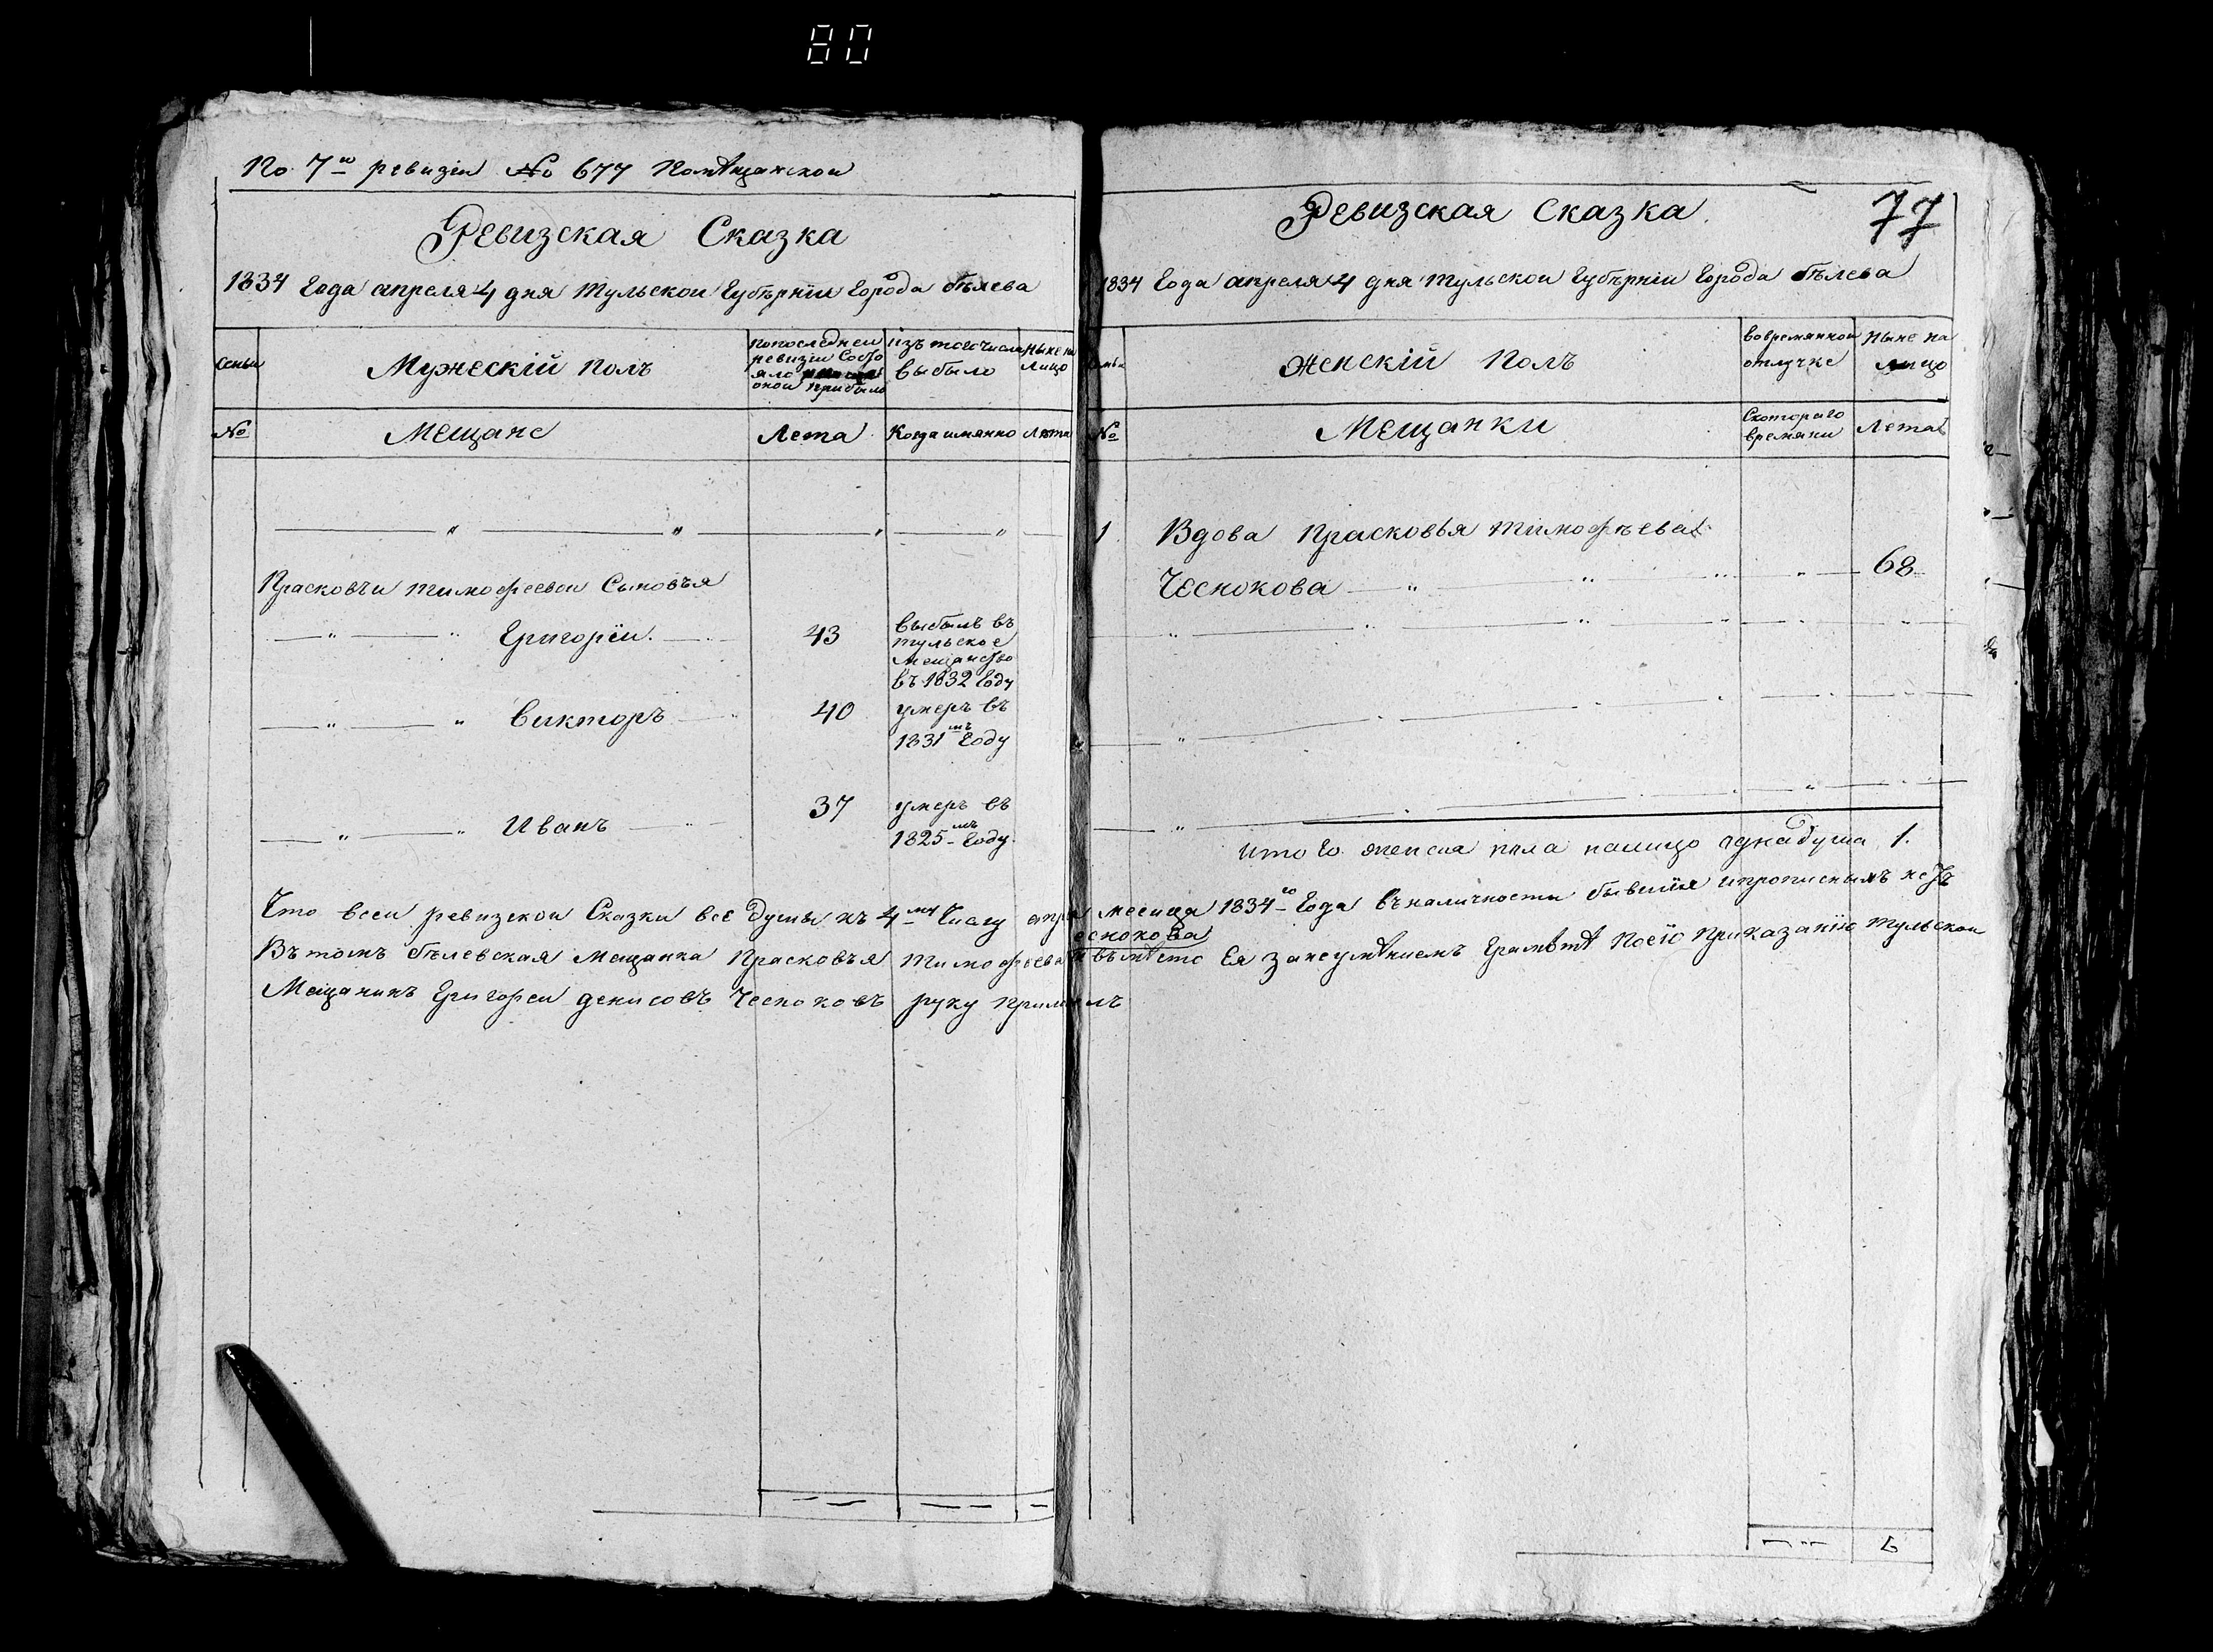 80
По 7й ревизіи № 677 Помѣщанской
Ревизская Сказка
1834 Года апреля 4 дня Тульской Губърніи Города бѣлева
семьи
Мужескій Полъ
попоследней ревизіи Состо
яло
оной прибыло
изъ тогочисла
выбыло
Ныне на
Лицо
№
Мещане
Лета
Когда имянно
Лѣта
Прасковъи тимофеевой Сыновъя
Григорїй
43
выбылъ въ
тульское
мещанство
въ 1832 Году
Викторъ
40
умеръ въ
1831мъ Году
Иванъ
37
умеръ въ
1825мъ Году
77
Ревизская Сказка.
1834 Года апреля 4 дня тульской Губърніи Города бѣлева
Женскій Полъ
вовремянной
отлучке
Ныне на
лицо
№
Мещанки
Скотораго
времяни
Лета
1
Вдова Прасковья тимофѣева
Чеснокова
68
Итого женска пола налицо одна душа 1.
Что всей ревизской Сказки все души къ 4му Числу месяца 1834го Года въналичности бывшїя ипрописныхъ нѣтъ
еснокова
Вътомъ бѣлевская мещанка Прасковъя тимофѣева вѣместо Ея занеумѣниемъ Грамѣтѣ Поеїо Приказанїю тульской
Мещанинъ Григорей денисовъ Чесноковъ руку приложилъ